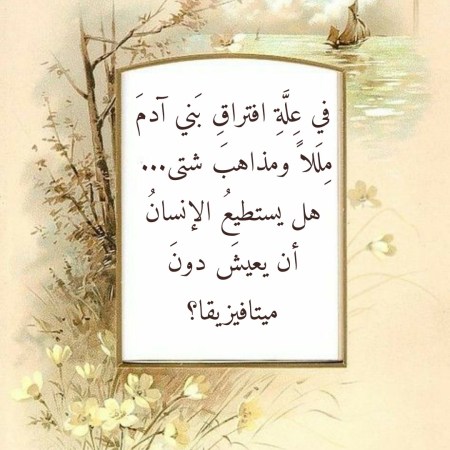 في عِلَّةِ افتراقِ بَني آدمَ
مِلَلاً ومذاهبَ شتى...
هل يستطيعُ الإنسانُ
أن يعيشَ دونَ
ميتافيزيقا؟